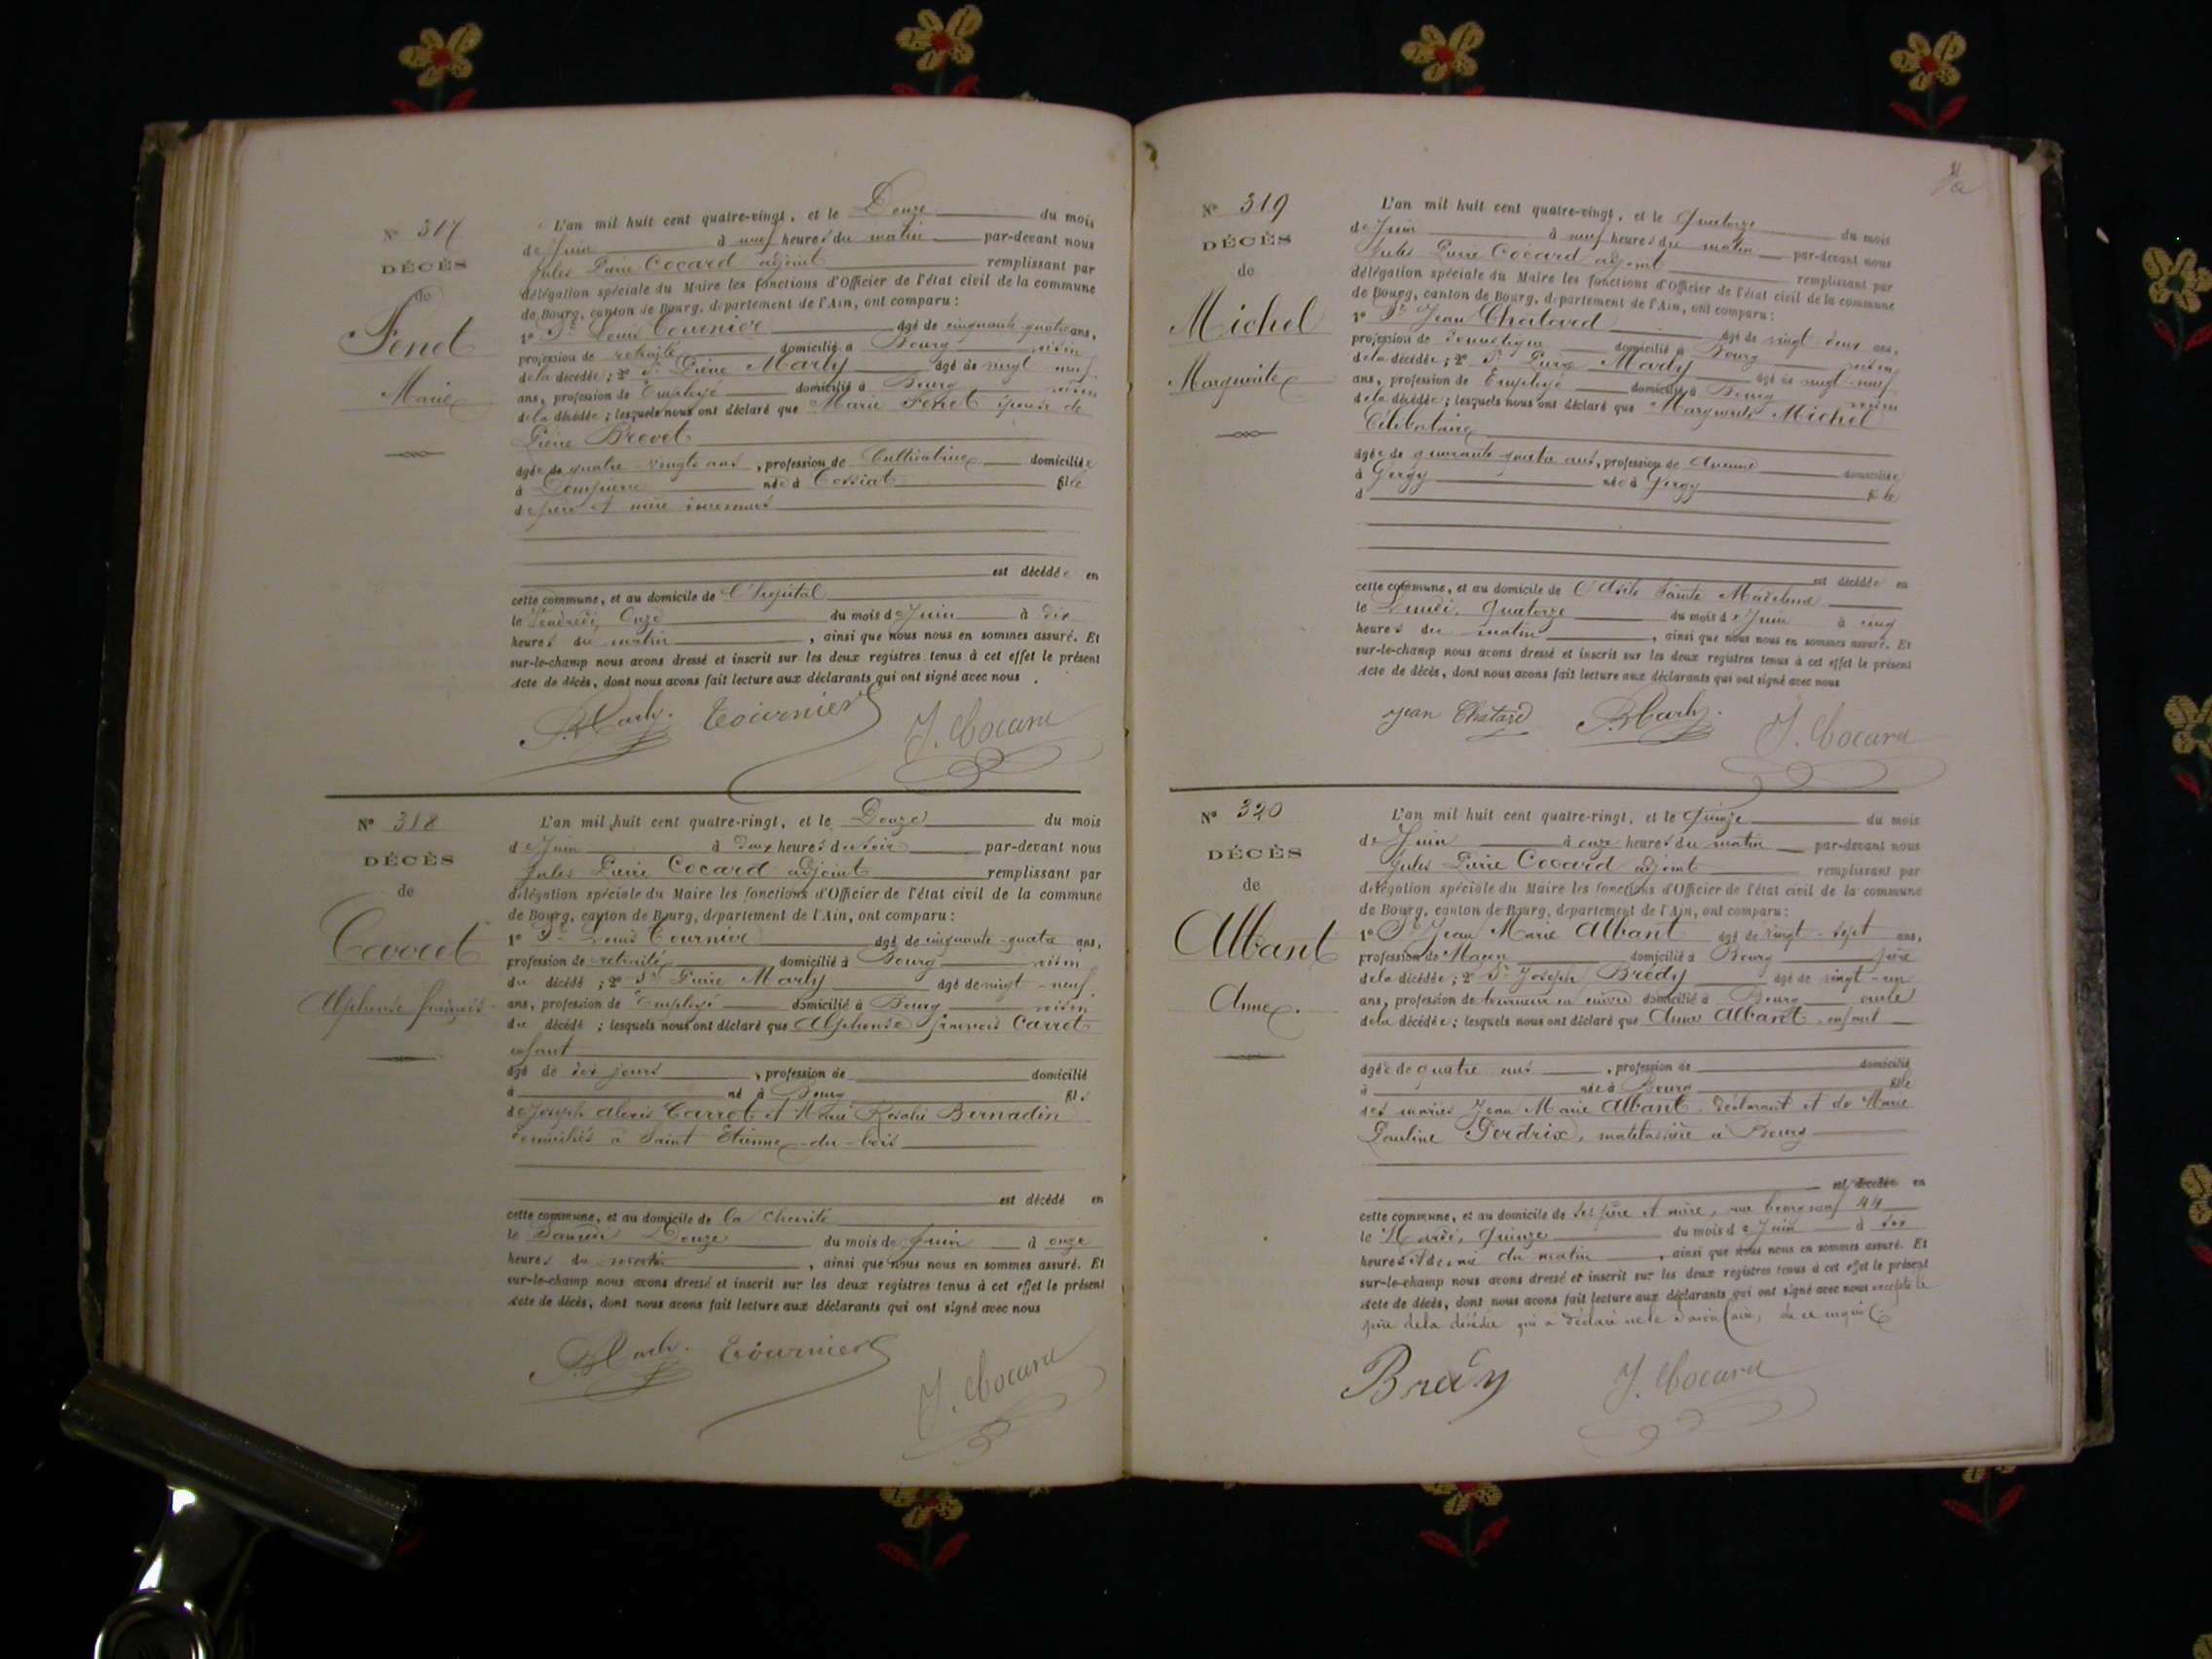 Nº 317
DÉCÈS
de
Fenet
Marie
L'an mil huit cent quatre-vingt, et le Douze du mois
de Juin à neuf heures du matin par-devant nous
Jules Pierre Cocard adjoint remplissant par
délégation spéciale du Maire les fonctions d'Officier de l'état civil de la commune
de Bourg, canton de Bourg, département de l'Ain, ont comparu :
1º Sr Louis Tournier âgé de cinquante-quatre ans,
profession de retraité domicilié à Bourg voisin
de la décédée ; 2º Sr Pierre Marly âgé de vingt-neuf
ans, profession de Employé domicilié à Bourg voisin
de la décédée ; lesquels nous ont déclaré que Marie Fenet épouse de
Pierre Brevet
âgée de quatre-vingts ans, profession de Cultivatrice domiciliée
à Dompierre née à Cossiat fille
de père et mère inconnus
est décédée en
cette commune, et au domicile de l'hopital
le Vendredi, Onze du mois de Juin à dix
heures du matin, ainsi que nous nous en sommes assuré. Et
sur-le-champ nous avons dressé et inscrit sur les deux registres tenus à cet effet le présent
Acte de décès, dont nous avons fait lecture aux déclarants qui ont signé avec nous.
P. Marly. Tournier J. Cocard
Nº 318
DÉCÈS
de
Carret
Alphonse françois
L'an mil huit cent quatre-vingt, et le Douze du mois
de Juin à deux heures du soir par-devant nous
Jules Pierre Cocard adjoint remplissant par
délégation spéciale du Maire les fonctions d'Officier de l'état civil de la commune
de Bourg, canton de Bourg, département de l'Ain, ont comparu :
1º Sr Louis Tournier âgé de cinquante-quatre ans,
profession de retraité domicilié à Bourg voisin
du décédé ; 2º Sr Pierre Marly âgé de vingt-neuf
ans, profession de Employé domicilié à Bourg voisin
du décédé ; lesquels nous ont déclaré que Alphonse françois Carret
enfant
âgé de dix jours, profession de domicilié
à né à Bourg fils
de Joseph Alexis Carret et Marie Rosalie Bernadin
domiciliés à Saint Etienne-du-bois
est décédé en
cette commune, et au domicile de la Charité
le Samedi Douze du mois de Juin à onze
heures du matin, ainsi que nous nous en sommes assuré. Et
sur-le-champ nous avons dressé et inscrit sur les deux registres tenus à cet effet le présent
Acte de décès, dont nous avons fait lecture aux déclarants qui ont signé avec nous
P. Marly. Tournier J. Cocard
Nº 319
DÉCÈS
de
Michel
Marguerite
L'an mil huit cent quatre-vingt, et le Quatorze du mois
de Juin à neuf heures du matin par-devant nous
Jules Pierre Cocard adjoint remplissant par
délégation spéciale du Maire les fonctions d'Officier de l'état civil de la commune
de Bourg, canton de Bourg, département de l'Ain, ont comparu :
1º Sr Jean Chatard âgé de vingt-deux ans,
profession de Domestique domicilié à Bourg voisin
de la décédée ; 2º Sr Pierre Marly âgé de vingt-neuf
ans, profession de Employé domicilié à Bourg voisin
de la décédée ; lesquels nous ont déclaré que Marguerite Michel
Célibataire
âgée de quarante-quatre ans, profession de Aucune domiciliée
à Gergy née à Gergy fille
d
est décédée en
cette commune, et au domicile de l'Asile Sainte Madeleine
le Lundi, Quatorze du mois de Juin à cinq
heures du matin, ainsi que nous nous en sommes assuré. Et
sur-le-champ nous avons dressé et inscrit sur les deux registres tenus à cet effet le présent
Acte de décès, dont nous avons fait lecture aux déclarants qui ont signé avec nous
Jean Chatard P. Marly. J. Cocard
Nº 320
DÉCÈS
de
Albant
Anne.
L'an mil huit cent quatre-vingt, et le Quinze du mois
de Juin à onze heures du matin par-devant nous
Jules Pierre Cocard adjoint remplissant par
délégation spéciale du Maire les fonctions d'Officier de l'état civil de la commune
de Bourg, canton de Bourg, département de l'Ain, ont comparu :
1º Sr Jean Marie Albant âgé de vingt-sept ans,
profession de Maçon domicilié à Bourg père
de la décédée ; 2º Sr Joseph Brédy âgé de vingt-un
ans, profession de tourneur en cuivre domicilié à Bourg oncle
de la décédée ; lesquels nous ont déclaré que Anne Albant enfant
âgée de quatre ans, profession de domicilié
à née à Bourg fille
des mariés Jean Marie Albant, déclarant et de Marie
Pauline Perdrix, matelassière à Bourg
est décédée en
cette commune, et au domicile de ses père et mère, rue 44
le Mardi, Quinze du mois de Juin à six
heures et demie du matin, ainsi que nous nous en sommes assuré. Et
sur-le-champ nous avons dressé et inscrit sur les deux registres tenus à cet effet le présent
Acte de décès, dont nous avons fait lecture aux déclarants qui ont signé avec nous excepté le
père de la décédée qui a déclaré ne le savoir faire, de ce requis.
Brédy J. Cocard